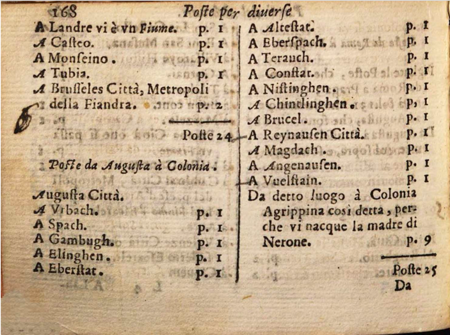 168 Poste per diverse
A Landre vi è vn Fiume. p. 1
A Casteo. p. 1
A Monseino. p. 1
A Tubia. p. 1
A Brusseles Città, Metropoli
della Fiandra. p. 2
Poste 24
Poste da Augusta à Colonia.
Augusta Città.
A Vrbach. p. 1
A Spach. p. 1
A Gambugh. p. 1
A Elsinghen. p. 1
A Eberstat. p. 1
A Altestat. p. 1
A Eberspach. p. 1
A Terauch. p. 1
A Constat. p. 1
A Nistinghen. p. 1
A Chintlinghen. p. 1
A Brucel. p. 1
A Reynausen Città. p. 1
A Magdach. p. 1
A Angenausen. p. 1
A Vuelstain. p. 1
Da detto luogo à Colonia
Agrippina così detta, per-
che vi nacque la madre di
Nerone. p. 9
Poste 25
Da